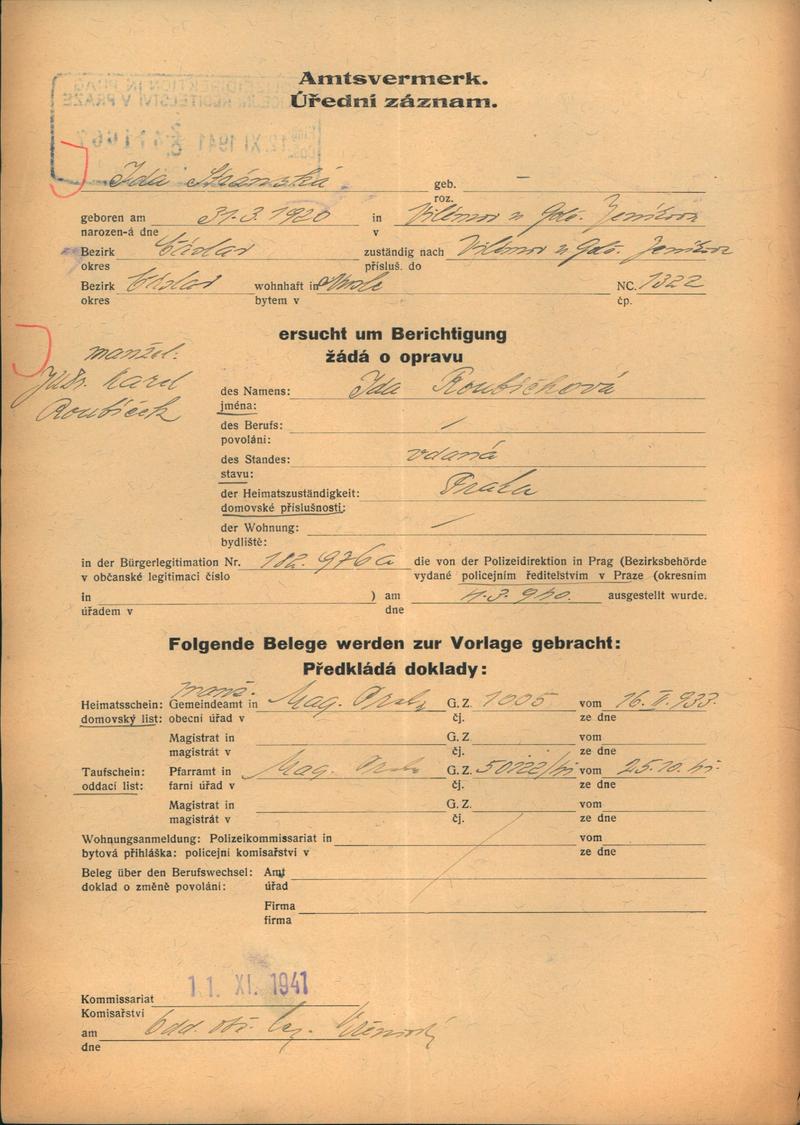 Amtsvermerk.
Úřední záznam.
12. XI. 1941
Ida Stránská geb. —
roz.
geboren am 31.3.1920 in Vilémov u Golč. Jeníkova
narozen-á dne v
Bezirk Čáslav zuständig nach Vilémov u Golč. Jeníkova
okres přísluš. do
Bezirk Čáslav wohnhaft in NC. 1322
okres bytem v čp.
ersucht um Berichtigung
žádá o opravu
manžel:
JUDr. Karel
Roubíček
des Namens: Ida Roubíčková
jména:
des Berufs: /
povolání:
des Standes: vdaná
stavu:
der Heimatszuständigkeit: Praha
domovské příslušnosti:
der Wohnung: /
bydliště:
in der Bürgerlegitimation Nr. 182.976a die von der Polizeidirektion in Prag (Bezirksbehörde
v občanské legitimaci číslo vydané policejním ředitelstvím v Praze (okresním
in ) am 4.3.940. ausgestellt wurde.
úřadem v dne
Folgende Belege werden zur Vorlage gebracht:
Předkládá doklady:
manž.
Heimatsschein: Gemeindeamt in Mag. Praha G. Z. 1005 vom 16. II. 933.
domovský list: obecní úřad v čj. ze dne
Magistrat in G. Z. vom
magistrát v čj. ze dne
Taufschein: Pfarramt in Mag. Praha G. Z. 50722/41 vom 25.10.41.
oddací list: farní úřad v čj. ze dne
Magistrat in G. Z. vom
magistrát v čj. ze dne
Wohnungsanmeldung: Polizeikommissariat in vom
bytová přihláška: policejní komisařství v ze dne
Beleg über den Berufswechsel: Amt
doklad o změně povolání: úřad
Firma
firma
11. XI. 1941
Kommissariat
Komisařství
am
dne